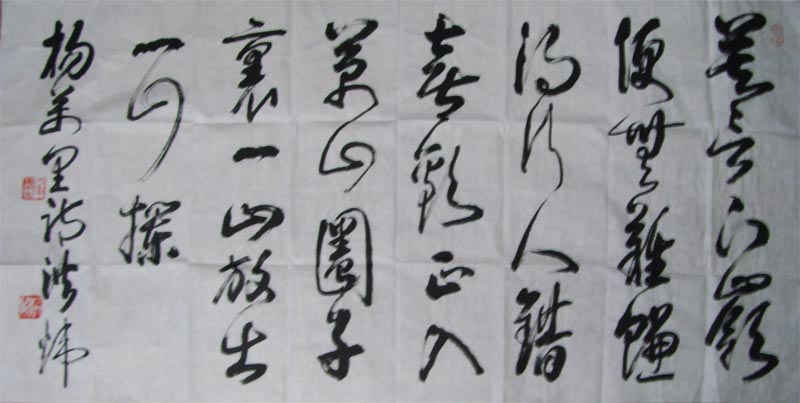 莫言下嶺
便無難賺
得行人錯
喜歡正入
萬山圈子
裏一山放出
一山攔
楊萬里詩洪煒